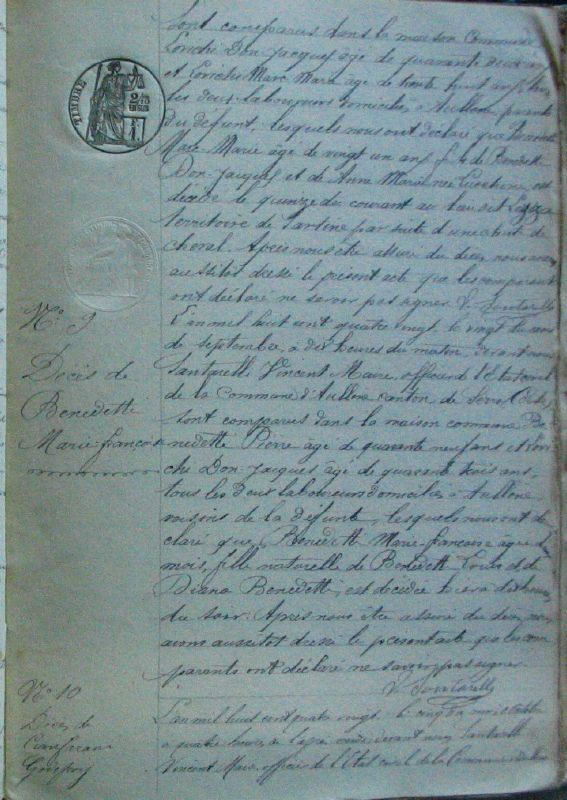 sont comparus dans la maison Commune
Don Jacques âgé de quarante
et Marc Marie âgé de trente huit ans, tous
les deux laboureurs domiciliés à Aullène
du défunt, lesquels nous ont déclaré que Benedetti
Marc-Marie âgé de vingt un ans, fils de Benedetti
Don-Jacques et de Anne Marie née est
décédé le quinze du courant au lieu dit
territoire de Sartène par suite d'une chute de
cheval. Après nous être assuré du décès, nous avons
aussitôt dressé le présent acte que les comparants
ont déclaré ne savoir pas signer
TIMBRE
N° 9
Décès de
Benedetti
Marie-françoise
L'an mil huit cent quatre vingt, le vingt du mois
de septembre, à dix heures du matin, devant nous
Vincent Maire, officier de l'Etat civil
de la Commune d'Aullène canton de Serra
sont comparus dans la maison commune Be
nedetti Pierre âgé de quarante neuf ans et
Don-Jacques âgé de quarante trois ans,
tous les deux laboureurs domiciliés à Aullène
voisins de la défunte, lesquels nous ont dé
claré que, Benedetti Marie-françoise agée de
mois, fille naturelle de Benedetti Louis et de
Diana Benedetti, est décédée hier à dix heures
du soir. Après nous être assuré du décès, nous
avons aussitôt dressé le présent acte que les com
parants ont déclaré ne savoir pas signer
N° 10
Décès de
L'an mil huit cent quatre vingt, le cinq du mois d'octobre
à quatre heures de devant nous
Vincent Maire officier de l'Etat civil de la Commune